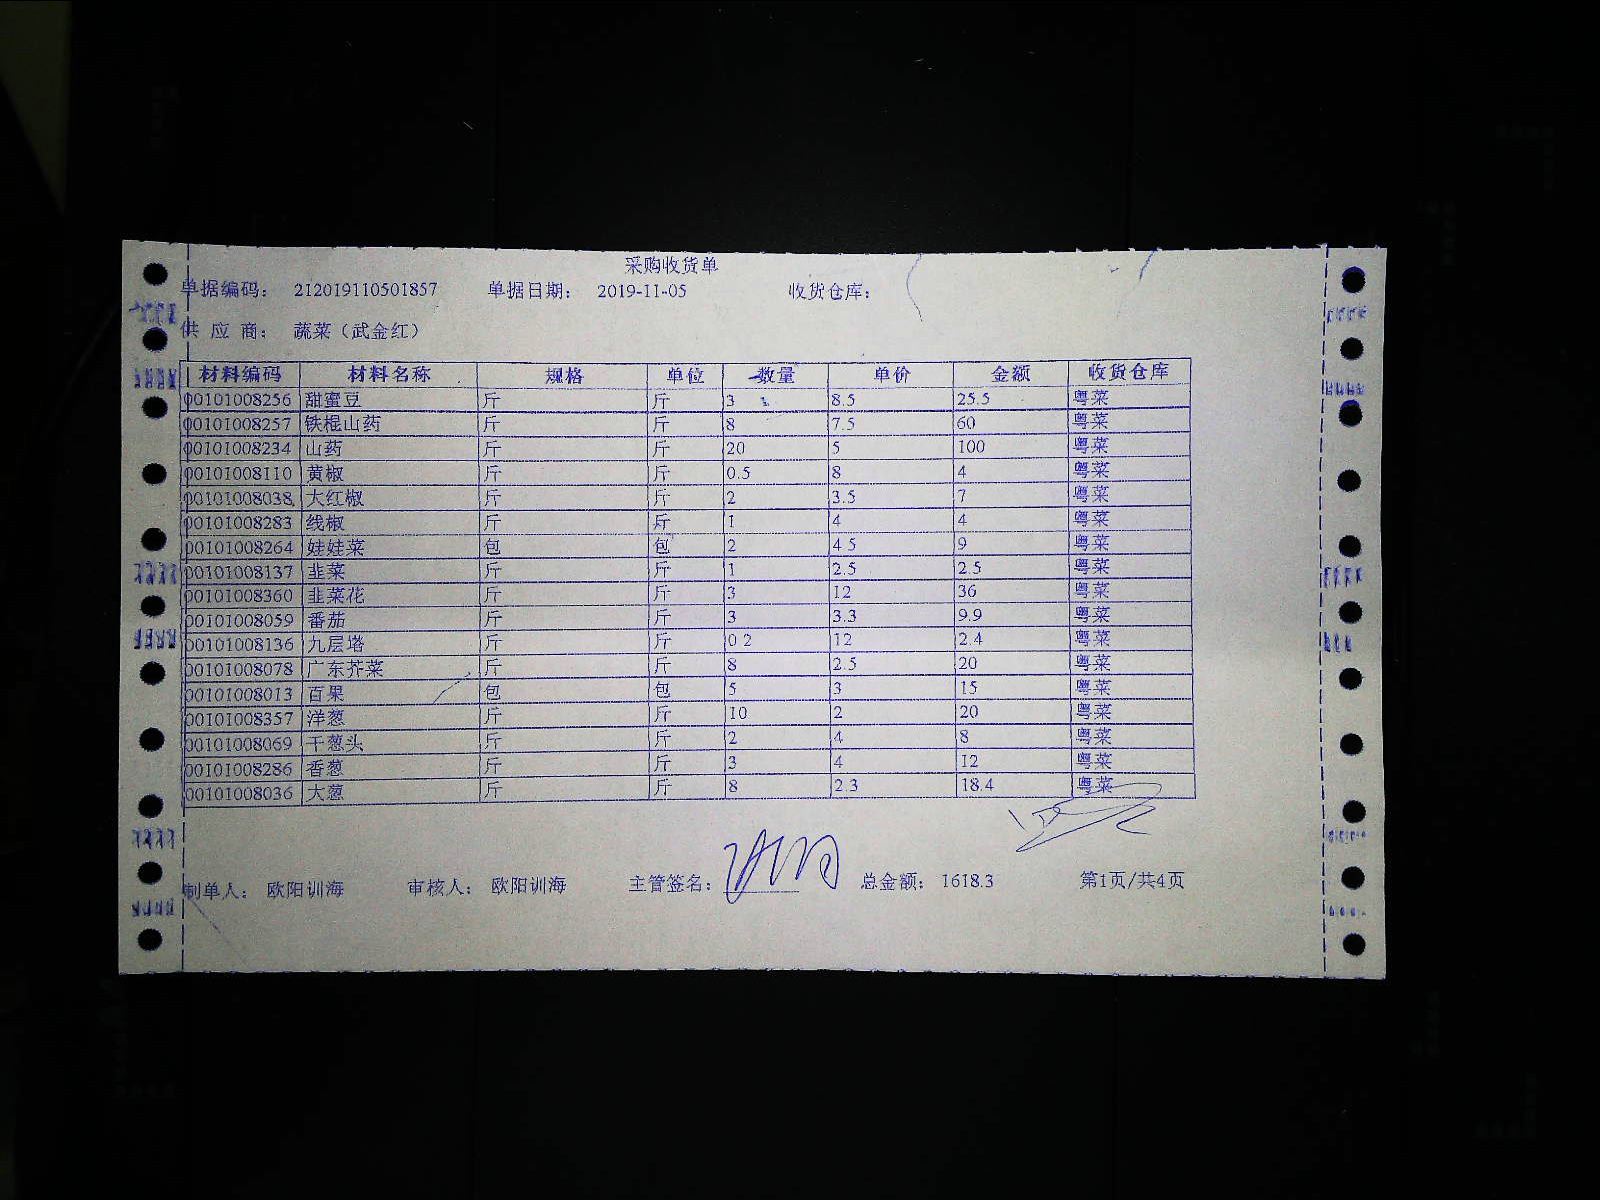 采购收货单
单据编码： 212019110501857 单据日期： 2019-11-05 收货仓库：
供 应 商： 蔬菜（武金红）
材料编码 材料名称 规格 单位 数量 单价 金额 收货仓库
00101008256 甜蜜豆 斤 斤 3 8.5 25.5 粤菜
00101008257 铁棍山药 斤 斤 8 7.5 60 粤菜
00101008234 山药 斤 斤 20 5 100 粤菜
00101008110 黄椒 斤 斤 0.5 8 4 粤菜
00101008038 大红椒 斤 斤 2 3.5 7 粤菜
00101008283 线椒 斤 斤 1 4 4 粤菜
00101008264 娃娃菜 包 包 2 4.5 9 粤菜
00101008137 韭菜 斤 斤 1 2.5 2.5 粤菜
00101008360 韭菜花 斤 斤 3 12 36 粤菜
00101008059 番茄 斤 斤 3 3.3 9.9 粤菜
00101008136 九层塔 斤 斤 0.2 12 2.4 粤菜
00101008078 广东芥菜 斤 斤 8 2.5 20 粤菜
00101008013 百果 包 包 5 3 15 粤菜
00101008357 洋葱 斤 斤 10 2 20 粤菜
00101008069 干葱头 斤 斤 2 4 8 粤菜
00101008286 香葱 斤 斤 3 4 12 粤菜
00101008036 大葱 斤 斤 8 2.3 18.4 粤菜
制单人： 欧阳训海 审核人： 欧阳训海 主管签名： 总金额： 1618.3 第1页/共4页